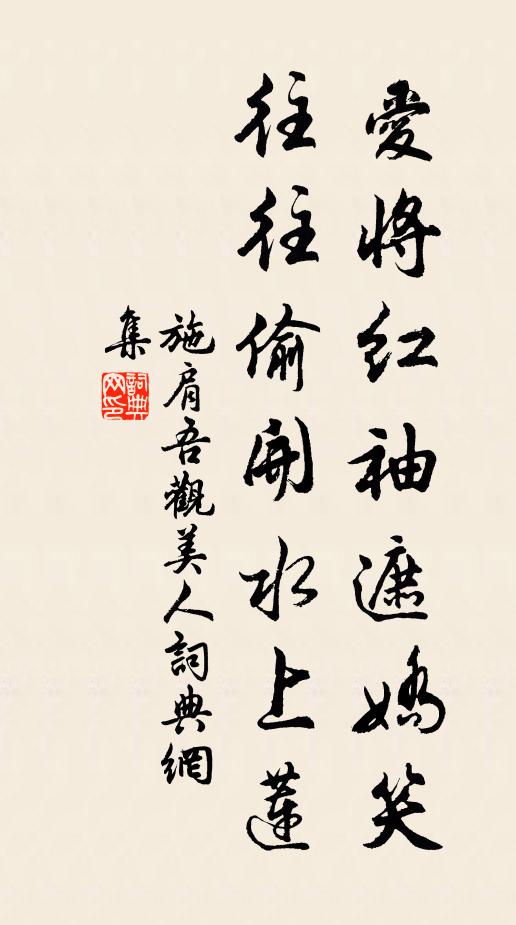 愛將紅袖遮嬌笑
往往偷開水上蓮
施肩吾觀美人詞典網
集
詞典
网印